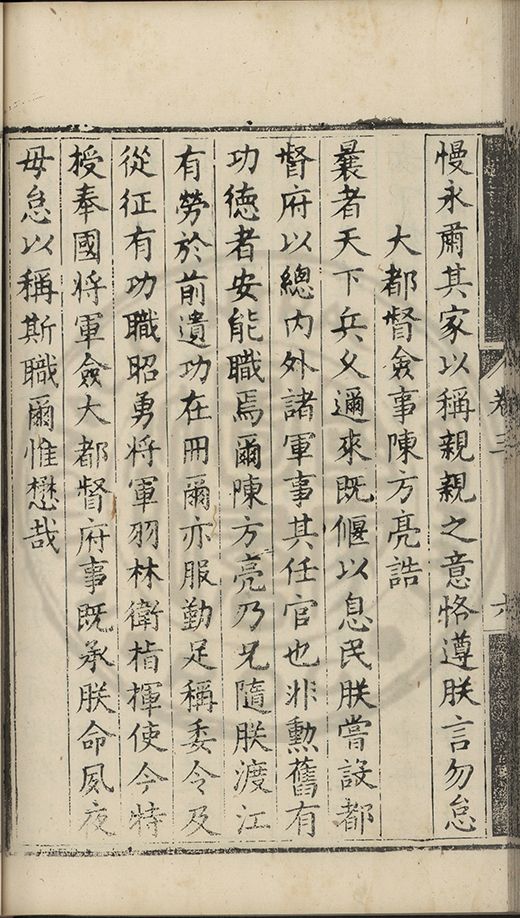 慢永肅其家以稱親親之意恪遵朕言勿怠
大都督僉事陳方亮誥
曩者天下兵爻邇來既偃以息民朕嘗設都
督府以總內外諸軍事其任官也非勳舊有
功德者安能職焉爾陳方亮乃兄隨朕渡江
有勞於前遺功在冊爾亦服勤足稱委令及
從征有功職昭勇將軍羽林衛指揮使今特
授奉國將軍僉大都督府事既承朕命夙夜
毋怠以稱斯職爾惟懋哉
卷三
六